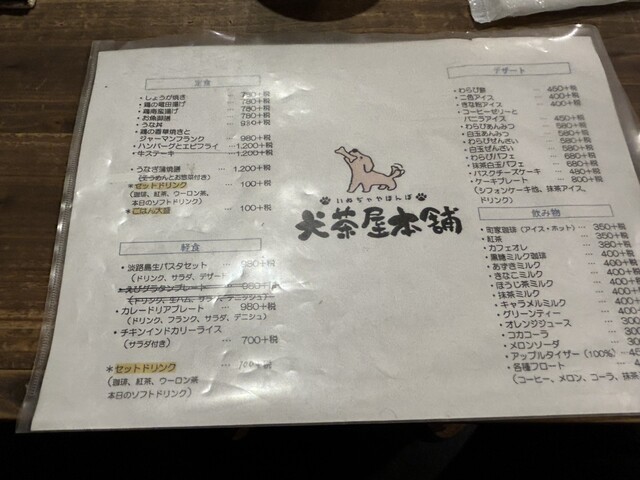 定食
・しょうが焼き … 780+税
・鶏の竜田揚げ 780+税
・鶏南蛮揚げ 780+税
・お魚御膳 780+税
・うな丼 … 980+税
・鶏の香草焼きと
ジャーマンフランク … 980+税
・ハンバーグとエビフライ … 1,200+税
・牛ステーキ … 1,200+税
・うなぎ蒲焼膳 … 1,200+税
(そうめんとお惣菜付き)
*セットドリンク … 100+税
(珈琲、紅茶、ウーロン茶、
本日のソフトドリンク)
*ごはん大盛 … 100+税
軽食
・淡路島生パスタセット … 980+税
(ドリンク、サラダ、デザート)
・えびグラタンプレート … 980+税
(ドリンク、生ハム、サラダ、デニッシュ)
・カレードリアプレート … 980+税
(ドリンク、フランク、サラダ、デニシュ)
・チキンインドカリーライス
(サラダ付き) … 700+税
*セットドリンク … 100+税
(珈琲、紅茶、ウーロン茶
本日のソフトドリンク)
いぬぢゃやほんぽ
犬茶屋本舗
デザート
・わらび餅 … 450+税
・二色アイス … 400+税
・きな粉アイス … 400+税
・コーヒーゼリーと
バニラアイス … 450+税
・わらびあんみつ … 580+税
・白玉あんみつ … 580+税
・わらびぜんざい … 580+税
・白玉ぜんざい … 580+税
・わらびパフェ … 680+税
・抹茶白玉パフェ … 680+税
・バスクチーズケーキ … 480+税
・ケーキプレート … 800+税
(シフォンケーキ他、抹茶アイス、
ドリンク)
飲み物
・町家珈琲(アイス・ホット) … 350+税
・紅茶 … 350+税
・カフェオレ … 380+税
・黒糖ミルク珈琲 … 400+税
・あずきミルク … 400+税
・きなこミルク … 400+税
・ほうじ茶ミルク … 400+
・抹茶ミルク … 400+
・キャラメルミルク … 400+
・グリーンティー … 400
・オレンジジュース … 300
・コカコーラ … 300
・メロンソーダ … 30
・アップルタイザー(100%) … 3
・各種フロート … 45
(コーヒー、メロン、コーラ、抹茶